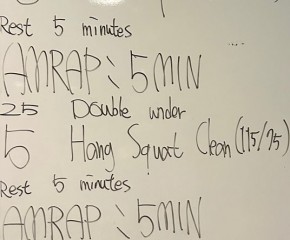 Rest 5 minutes
AMRAP: 5MIN
25 Double under
5 Hang Squat Clean (115/75)
Rest 5 minutes
AMRAP: 5MIN